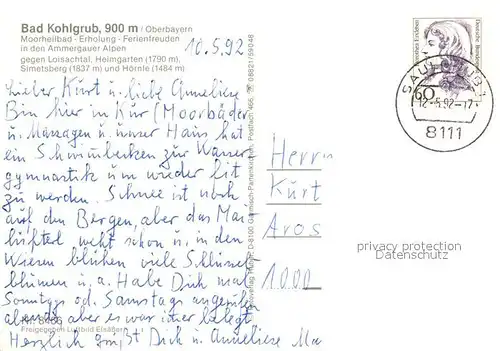 Bad Kohlgrub, 900 m / Oberbayern
Moorheilbad - Erholung - Ferienfreuden
in den Ammergauer Alpen
gegen Loisachtal, Heimgarten (1790 m),
Simetsberg (1837 m) und Hörnle (1484 m)
10.5.92
Lieber Kurt u. liebe Anneliese
Bin hier in Kur (Moorbäder
u. Massagen u. unser Haus hat
ein Schwimmbecken zur Wasser
gymnastik um wieder fit
zu werden. Schnee ist noch
auf den Bergen, aber das Mai
lüfterl weht schon u. in den
Wiesen blühen viele Schlüssel
blumen u. a. Habe Dich mal
Sonntags od. Samstags angerufen
abends aber es war immer belegt
Herzlich grüßt Dich u. Anneliese
Freigegeben Luftbild Elsäßer
08821/59048
Postfach 466,
D-8100 Garmisch-Partenkirchen,
Deutsche Bundespost
60
SAULGRUB 1
12.-5.92-17
8111
Herrn
Kurt
Aros
1000
privacy protection
Datenschutz